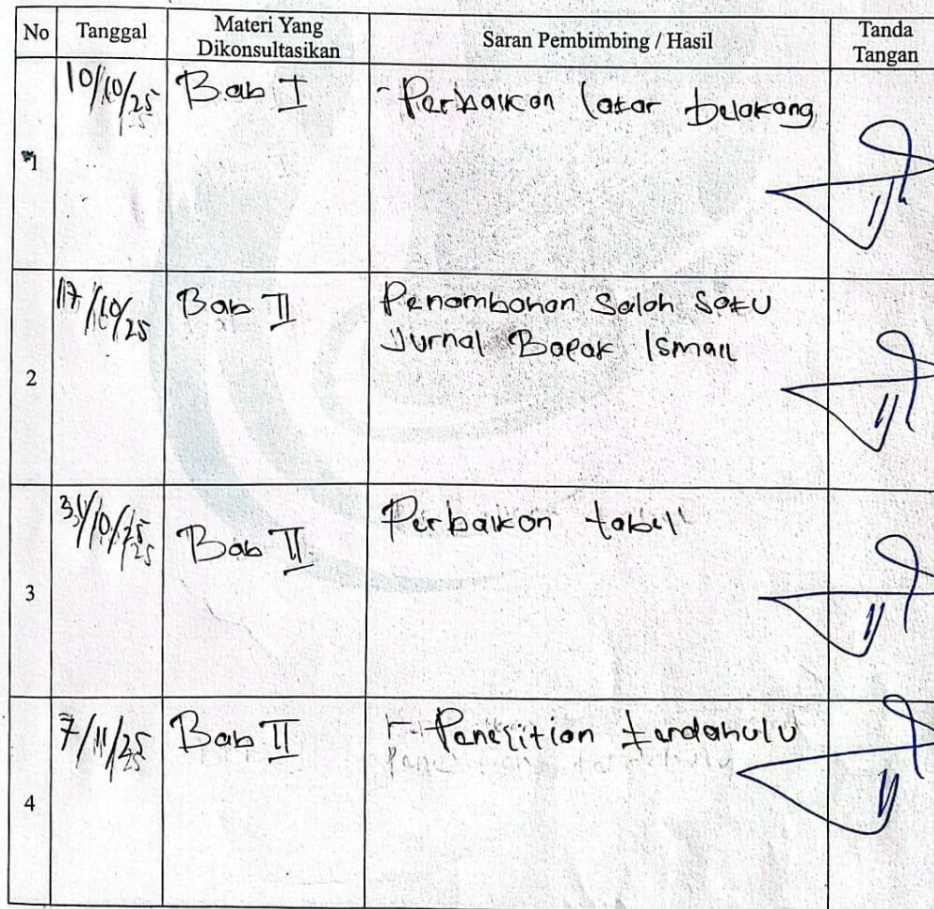 No Tanggal Materi Yang Dikonsultasikan Saran Pembimbing / Hasil Tanda Tangan
1 10/10/25 Bab I - Perbaikan latar belakang
2 17/10/25 Bab II Penambahan Salah Satu
Jurnal Bapak Ismail
3 31/10/25 Bab II Perbaikan tabel
4 7/11/25 Bab II - Penelitian terdahulu